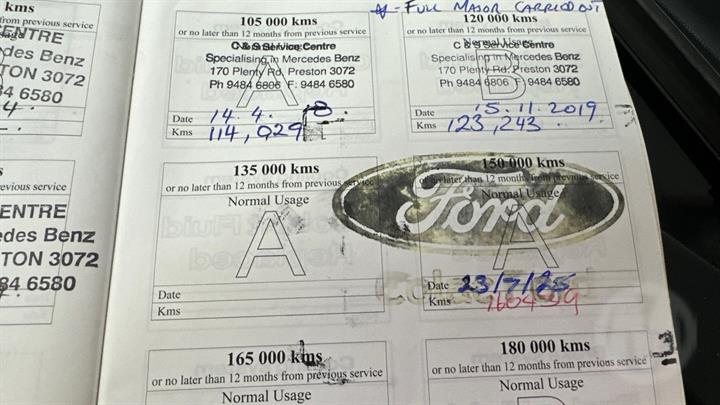 kms
from previous service
ENTRE
edes Benz
TON 3072
84 6580
105 000 kms
or no later than 12 months from previous service
C & S Service Centre
Specialising in Mercedes Benz
170 Plenty Rd, Preston 3072
Ph 9484 6806 F: 9484 6580
A
Date 14.4.18.
Kms 114,029
- FULL MAJOR CARRIED OUT
120 000 kms
or no later than 12 months from previous service
Normal Usage
C & S Service Centre
Specialising in Mercedes Benz
170 Plenty Rd, Preston 3072
Ph 9484 6806 F: 9484 6580
B
Date 15.11.2019
Kms 123,243
s
revious service
ENTRE
edes Benz
TON 3072
84 6580
135 000 kms
or no later than 12 months from previous service
Normal Usage
A
Date
Kms
150 000 kms
or no later than 12 months from previous service
Normal Usage
Ford
A
Date 23/7/25
Kms
165 000 kms
or no later than 12 months from previous service
Normal Usage
180 000 kms
or no later than 12 months from previous service
Normal Usage